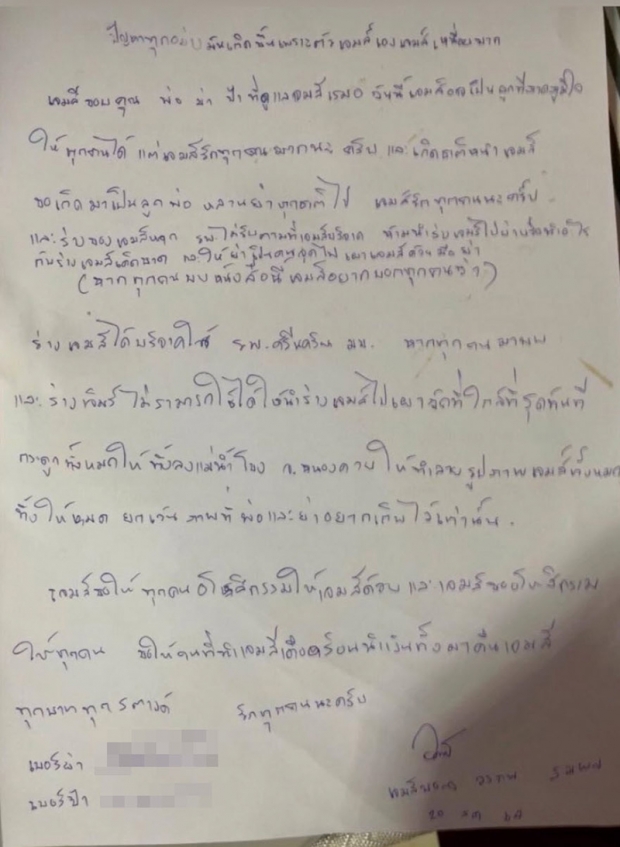 ปัญหาทุกอย่างมันเกิดขึ้นเพราะตัวเจมส์เองเจมส์เหนื่อยมาก
เจมส์ขอบคุณ พ่อ ย่า ป้า ที่ดูแลเจมส์เสมอ วันนี้เจมส์อาจเป็นลูกที่ภาคภูมิใจ
ให้ทุกคนได้ แต่เจมส์รักทุกคนมากนะครับ และเกิดชาติหน้าเจมส์
ขอเกิดมาเป็นลูกพ่อ หลานย่าทุกชาติไป เจมส์รักทุกคนนะครับ
และร่างของเจมส์หาก รพ. ได้รับตามที่เจมส์บริจาค ห้ามนำร่างเจมส์ไป
กับร่างเจมส์เด็ดขาด ให้ย่าเป็นคนจุดไฟเผาเจมส์ด้วยมือย่า
(หากทุกคนพบหนังสือนี้เจมส์อยากบอกทุกคนว่า)
ร่างเจมส์ได้บริจาคให้ รพ.ศรีนครินทร์ มข. หากทุกคนมาพบ
และร่างเจมส์ไม่สามารถใช้ได้ให้นำร่างเจมส์ไปเผาวัดที่ใกล้ที่สุดทันที
กระดูกทั้งหมดให้ทิ้งลงแม่น้ำโขง จ.หนองคาย ให้ทำลายรูปภาพเจมส์ทั้งหมด
ทิ้งให้หมด ยกเว้นภาพที่พ่อและย่าอยากเก็บไว้เท่านั้น.
เจมส์ขอให้ทุกคนอโหสิกรรมให้เจมส์ด้วยและเจมส์ขออโหสิกรรม
ให้ทุกคน ขอให้คนที่ทำเจมส์เดือดร้อนนำเงินทั้งมาคืนเจมส์
ทุกบาททุกสตางค์ รักทุกคนนะครับ
เบอร์ย่า
เบอร์ป้า